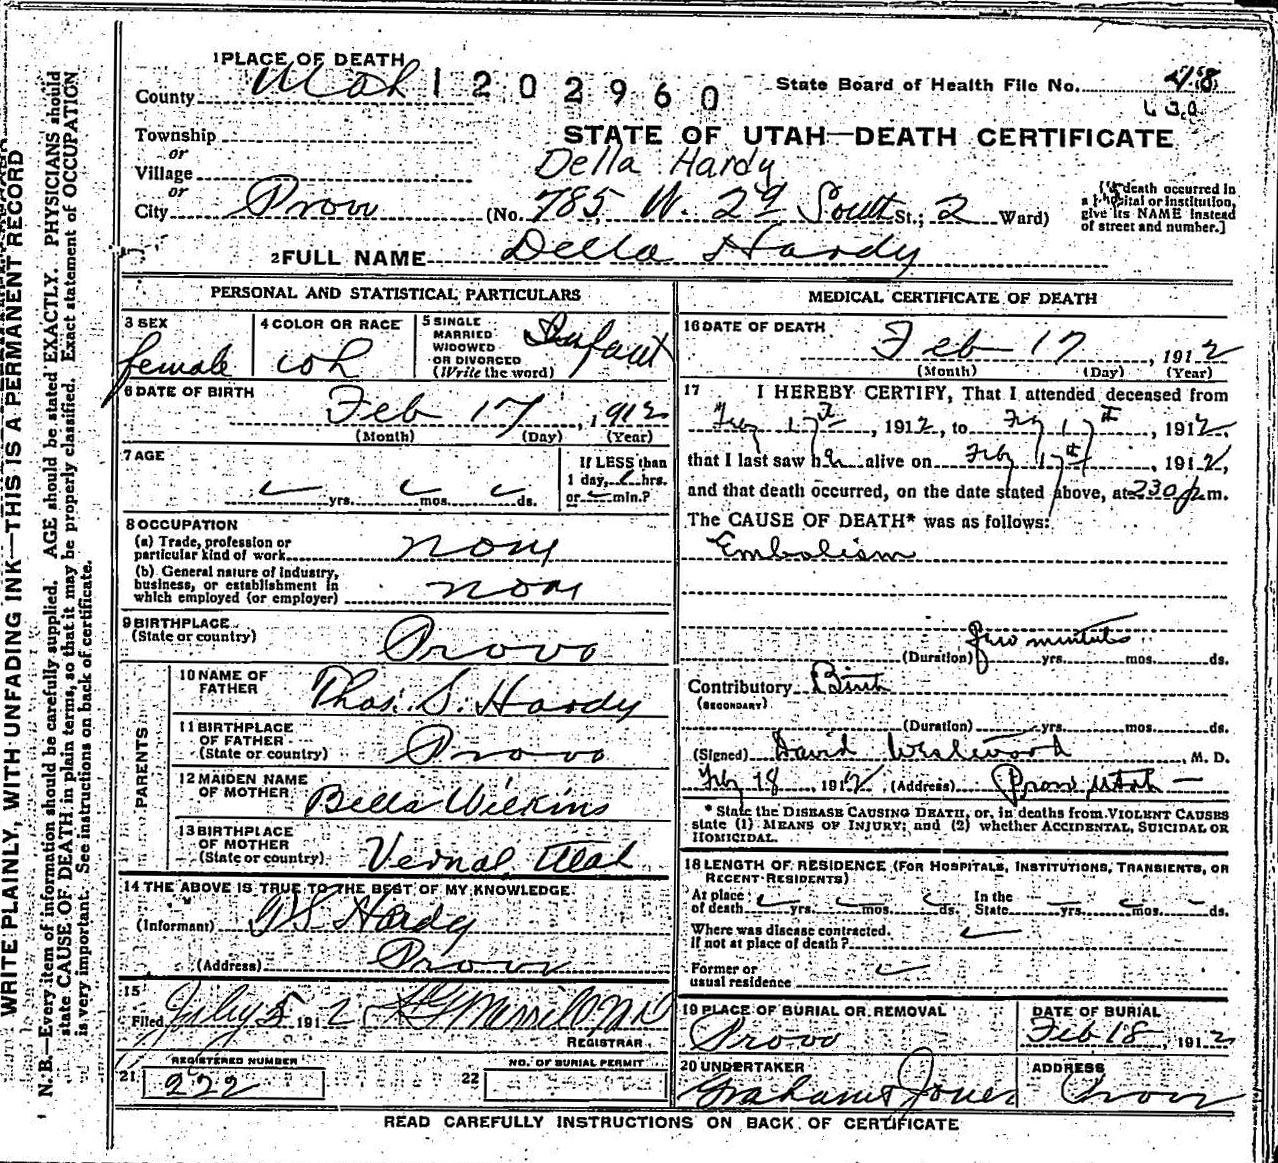 WRITE PLAINLY, WITH UNFADING INK—THIS IS A PERMANENT RECORD
N. B.—Every item of information should be carefully supplied. AGE should be stated EXACTLY. PHYSICIANS should
state CAUSE OF DEATH in plain terms, so that it may be properly classified. Exact statement of OCCUPATION
is very important. See instructions on back of certificate.
1 PLACE OF DEATH
County Utah 1202960 State Board of Health File No. 418
STATE OF UTAH—DEATH CERTIFICATE
Township
or
Village Della Hardy
or
City Provo (No. 785 W. 2d South St.; 2 Ward)
[If death occurred in
a hospital or institution,
give its NAME instead
of street and number.]
2 FULL NAME Della Hardy
PERSONAL AND STATISTICAL PARTICULARS
3 SEX female
4 COLOR OR RACE
5 SINGLE
MARRIED
WIDOWED
OR DIVORCED
(Write the word)
Infant
6 DATE OF BIRTH
Feb 17, 1912
(Month) (Day) (Year)
7 AGE
yrs. mos. ds.
If LESS than
1 day, hrs.
or min.?
8 OCCUPATION
(a) Trade, profession or
particular kind of work none
(b) General nature of industry,
business, or establishment in
which employed (or employer) none
9 BIRTHPLACE
(State or country) Provo
PARENTS
10 NAME OF
FATHER Thos. S. Hardy
11 BIRTHPLACE
OF FATHER
(State or country) Provo
12 MAIDEN NAME
OF MOTHER Bella Wilkins
13 BIRTHPLACE
OF MOTHER
(State or country) Vernal, Utah
14 THE ABOVE IS TRUE TO THE BEST OF MY KNOWLEDGE
(Informant) Hardy
(Address) Provo
15
Filed July 5 1912
REGISTRAR
REGISTERED NUMBER
21 222
NO. OF BURIAL PERMIT
22
MEDICAL CERTIFICATE OF DEATH
16 DATE OF DEATH
Feb 17, 1912
(Month) (Day) (Year)
17 I HEREBY CERTIFY, That I attended deceased from
Feb 17th, 1912, to Feb 17th, 1912,
that I last saw her alive on Feb 17th, 1912,
and that death occurred, on the date stated above, at 230 p m.
The CAUSE OF DEATH* was as follows:
Embolism
few minutes
(Duration) yrs. mos. ds.
Contributory Birth
(SECONDARY)
(Duration) yrs. mos. ds.
(Signed) David Westwood, M. D.
Feb 18 1912 (Address) Provo Utah
* State the DISEASE CAUSING DEATH, or, in deaths from VIOLENT CAUSES
state (1) MEANS OF INJURY; and (2) whether ACCIDENTAL, SUICIDAL OR
HOMICIDAL.
18 LENGTH OF RESIDENCE (FOR HOSPITALS, INSTITUTIONS, TRANSIENTS, OR
RECENT RESIDENTS)
At place In the
of death yrs. mos. ds. State yrs. mos. ds.
Where was disease contracted.
if not at place of death?
Former or
usual residence
19 PLACE OF BURIAL OR REMOVAL
Provo
DATE OF BURIAL
Feb 18, 1912
20 UNDERTAKER
Graham & Jones
ADDRESS
Provo
READ CAREFULLY INSTRUCTIONS ON BACK OF CERTIFICATE